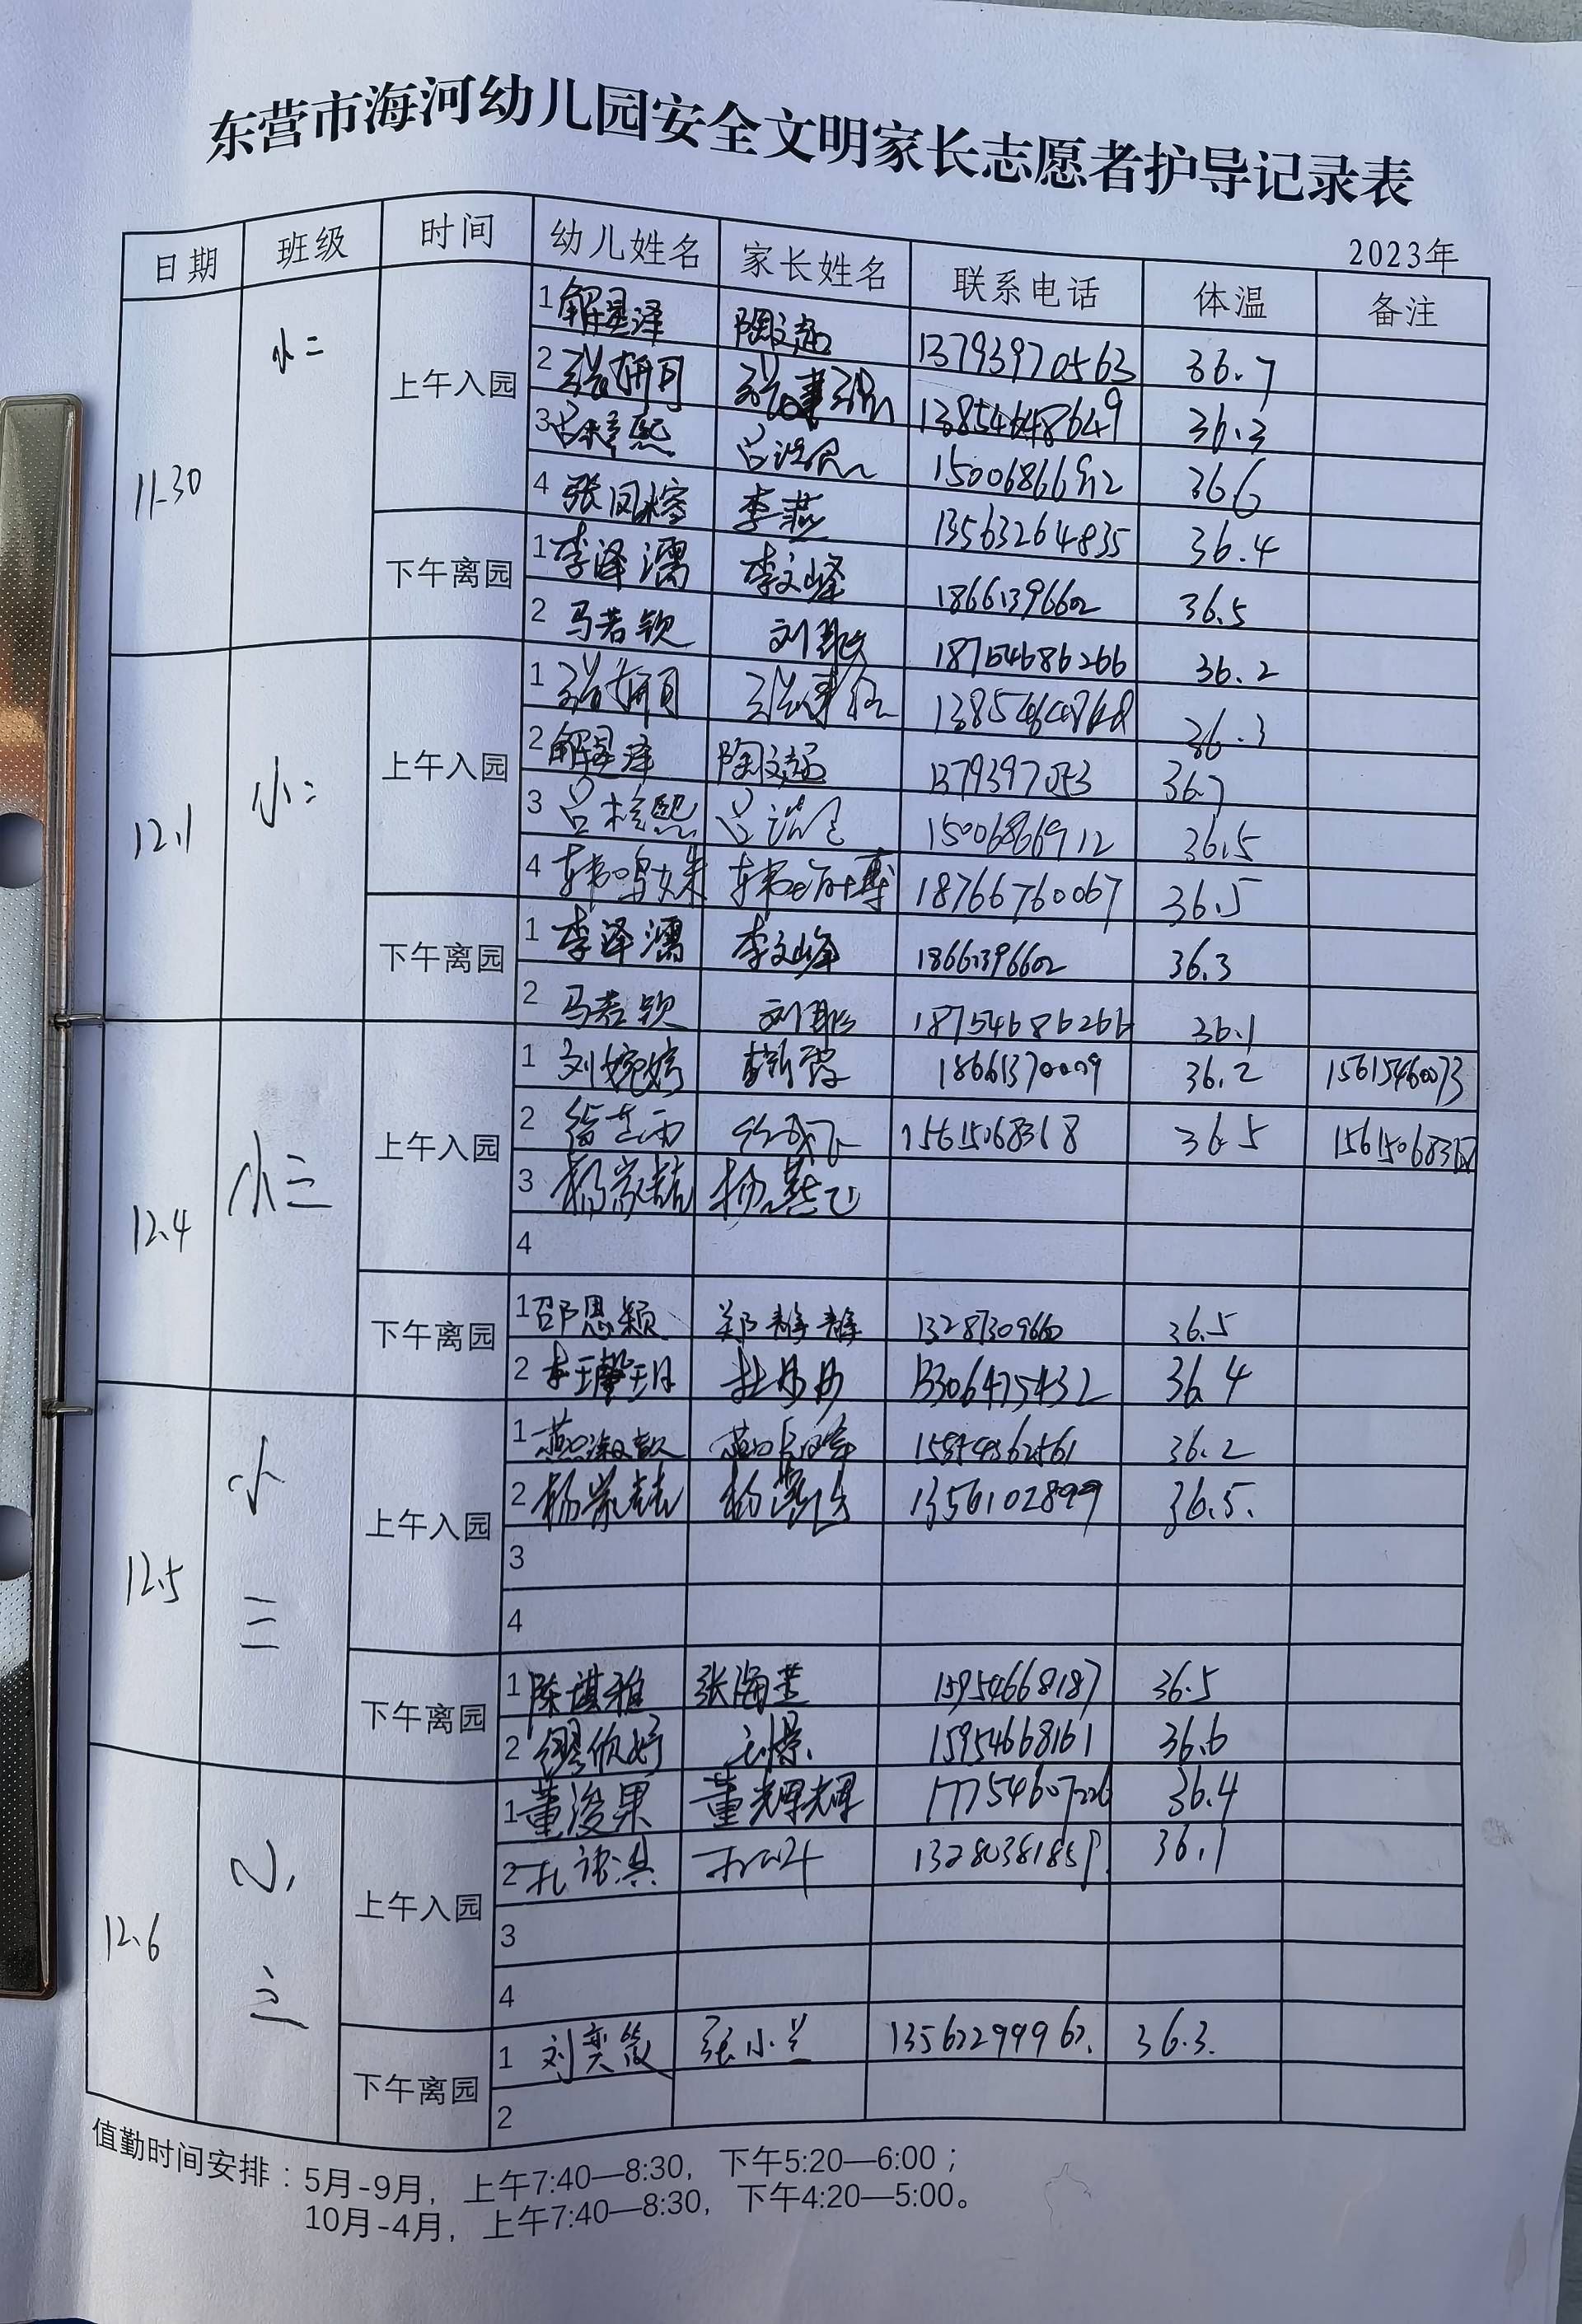 东营市海河幼儿园安全文明家长志愿者护导记录表
2023年
日期 班级 时间 幼儿姓名 家长姓名 联系电话 体温 备注
11.30 小二 上午入园
1 解星泽 陶文超 13793970563 36.7
2 张妍月 13854648649 36.3
3 吕梓熙 吕洪 36.6
4 张凤榕 李燕 13563264835 36.4
下午离园
1 李泽濡 李文峰 18661396602 36.5
2 马若钦 刘 18754686266 36.2
12.1 小二 上午入园
1 张妍月 36.3
2 解星泽 陶文超 36.7
3 吕梓熙 吕洪 15006866912 36.5
4 韩鸣姝 18766760067 36.5
下午离园
1 李泽濡 李文峰 18661396602 36.3
2 马若钦 刘 18754686266 36.1
12.4 小三 上午入园
1 刘婉婷 18661370009 36.2 15615460073
2 徐芷雨 15615068318 36.5
3 杨家喆 杨
4
下午离园
1 邵思颖 郑静静 13287309660 36.5
2 李馨玥 杜丹丹 15306475432 36.4
12.5 小三 上午入园
1 燕 燕 36.2
2 杨家喆 杨 13561028999 36.5.
3
4
下午离园
1 陈祺雅 张海芸 15954668187 36.5
2 缪欣妤 15954668161 36.6
12.6 小三 上午入园
1 董浚果 董辉辉 17754607226 36.4
2 孔 13280381859 36.1
3
4
下午离园
1 刘奕筱 张小兰 36.3.
2
值勤时间安排：5月-9月，上午7:40—8:30，下午5:20—6:00；
10月-4月，上午7:40—8:30，下午4:20—5:00。